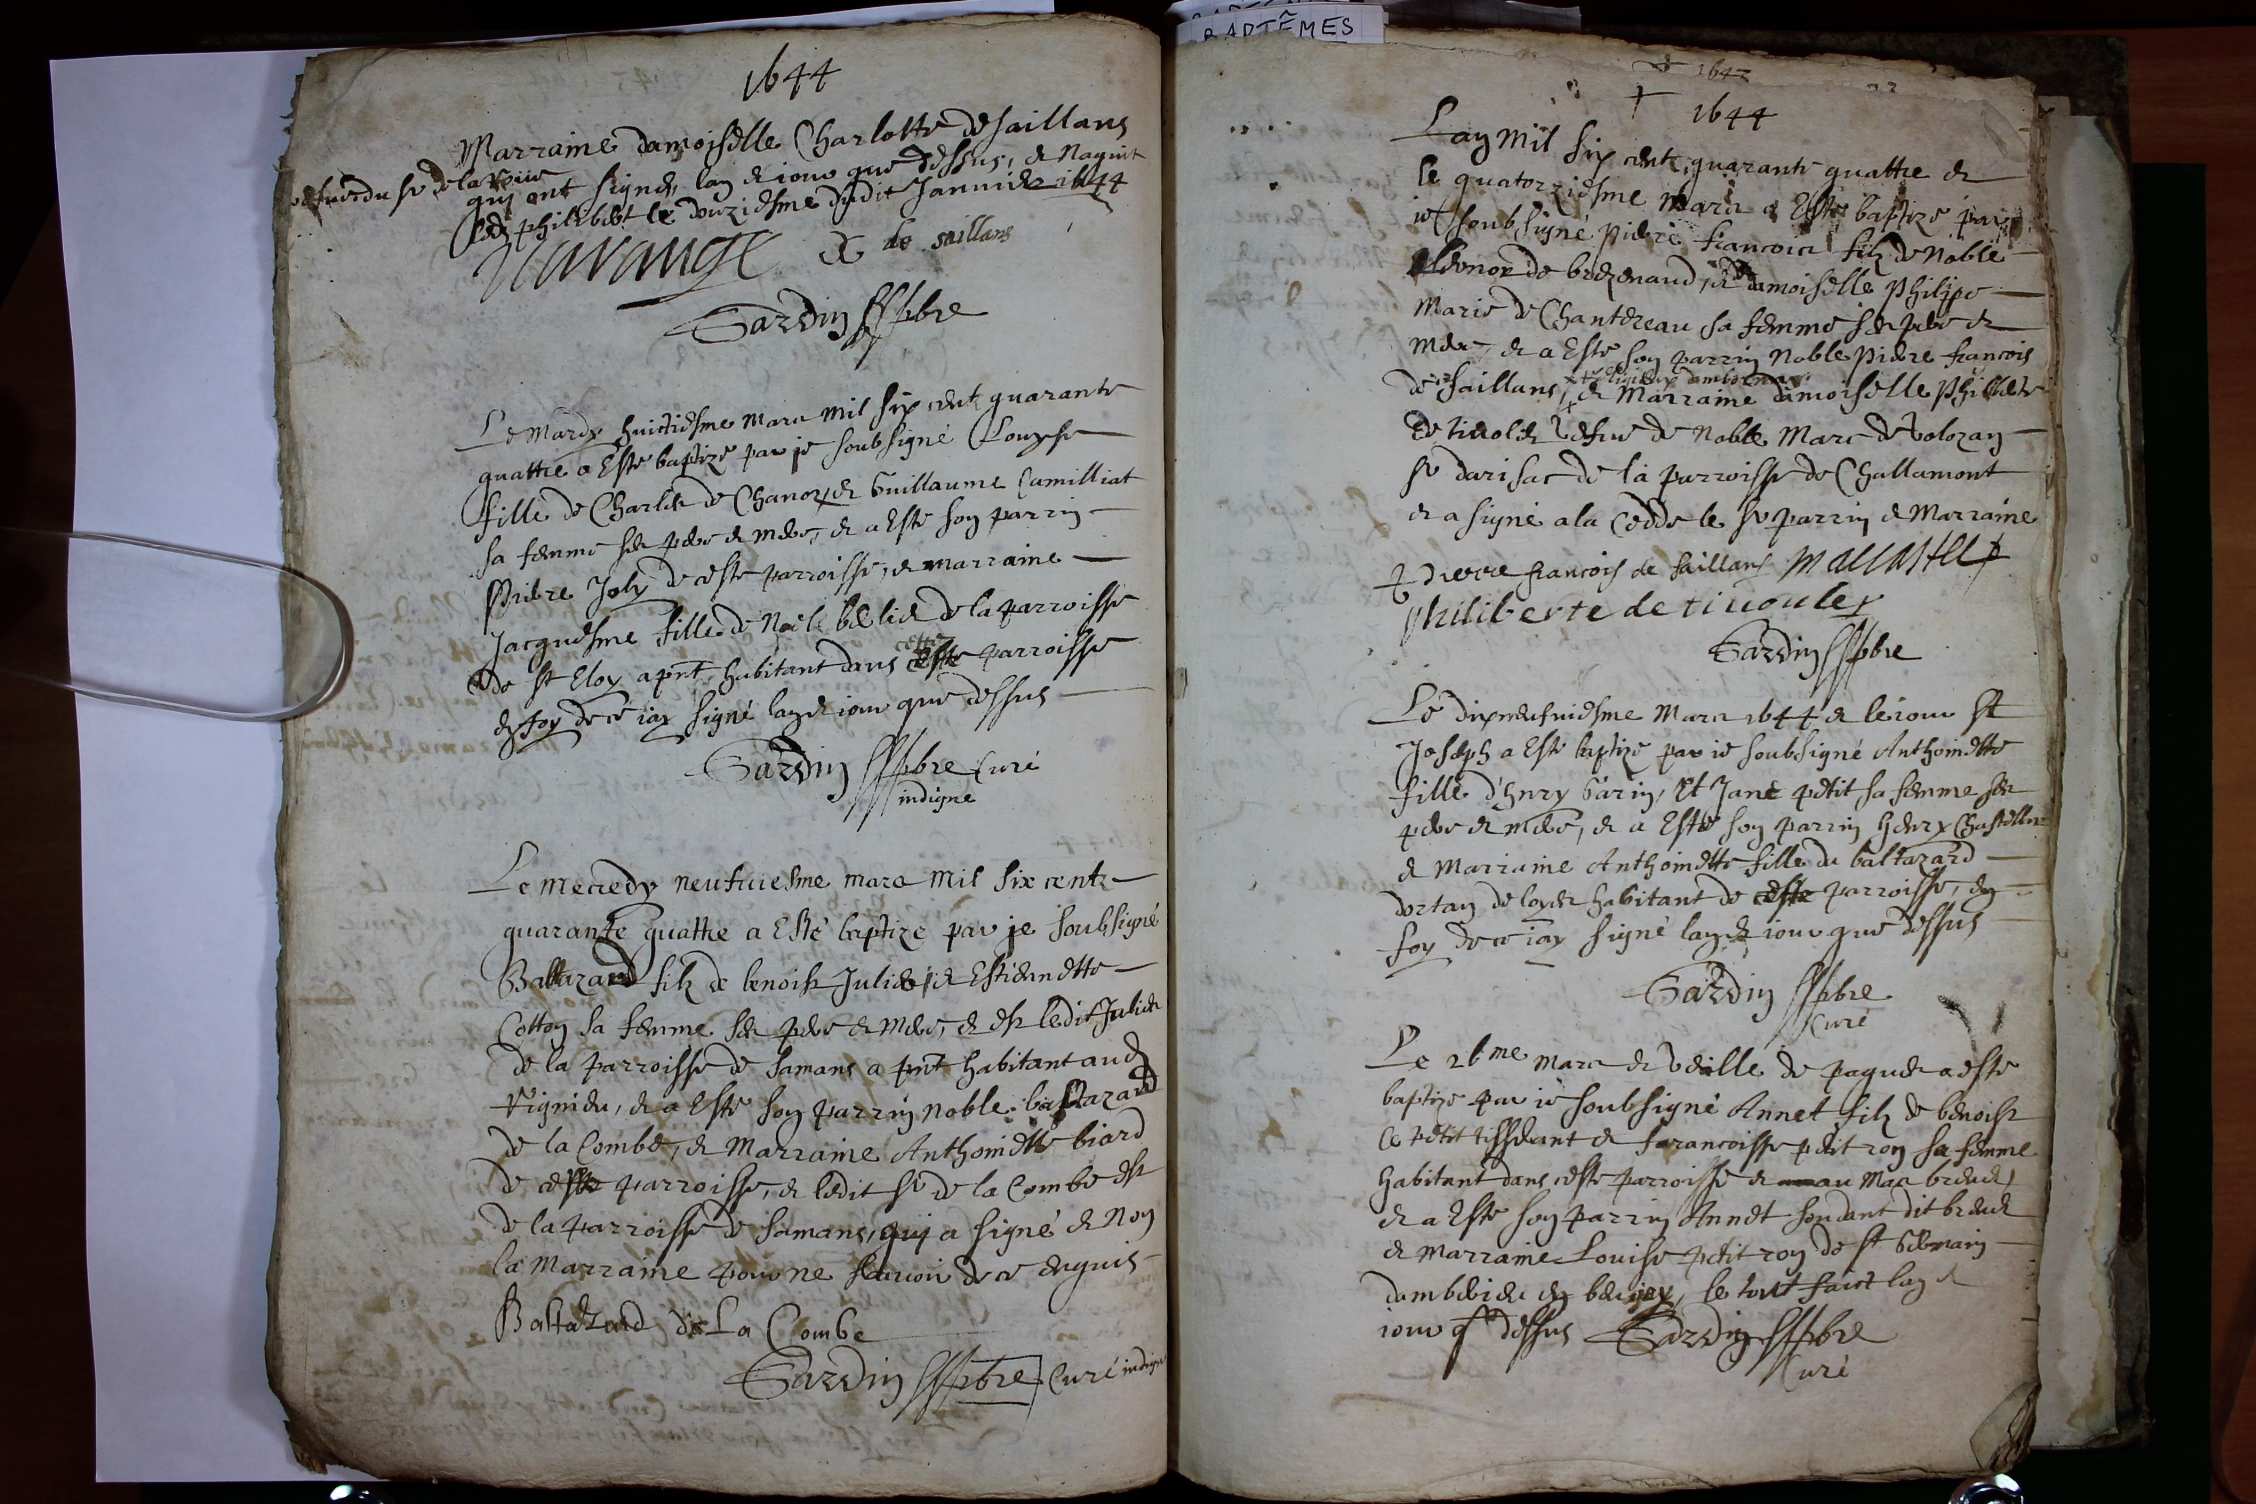 BAPTÊMES
1644
Marraine damoiselle Charlotte de saillans
vefue du sr de la
qui ont signés, lan et iour que dessus, et naquit
led philibert le douziesme dudit Januier 1644
Marange C de saillans
Gardin pbre
Le Mardy huictiesme Mars mil six cent quarante
quattre a Esté baptizé par je soubsigné Louyse
fille de Charles de Chanoz, et Guillaume Camilliat
sa femme ses pere et mere, et a Esté son parrin
Pierre Joly de ceste parroisse, et marraine
Jacquesme fille de Noël belier de la parroisse
de st Eloy a pnt habitant dans ceste ceste parroisse
en foy de ce iay signé lan et iour que dessus
Gardin pbre Curé
indigne
Le mecredy neufuiesme mars mil six cent
quarante quattre a Esté baptizé par je soubsigné
Baltazard filz de benoist Julier et Estiennette
Cotton sa femme ses pere et mere, et est ledit Julier
de la parroisse de samans a pnt habitant aud
vignieu, et a Esté son parrin noble baltazard
de la Combe, et Marraine Anthoinette biard
de ceste parroisse, et ledit sr de la Combe est
de la parroisse de samans, qui a signé et non
la Marraine pour ne scauoir de ce enquis
Baltazard de La Combe
Gardin pbre Curé indigne
1644
1644
Lan Mil six cent quarante quattre et
le quatorziesme Mars a Esté baptizé par
ie soubsigné pierre francois filz de Noble
Eleonor de brezenaud, et damoiselle philipe
Marie de Chantereau sa femme ses pere et
mere, et a Esté son parrin Noble pierre francois
de saillans, religieux dambornay
et Marraine damoiselle philiberte
de tiuoley vefue de Noble Marc de Volozan
sr darisac de la parroisse de Challamont
et a signé a la Cedde le sr parrin et Marraine
pierre francois de saillans
philiberte de tiuouley
Gardin pbre
Le dixneufuiesme Mars 1644 et le iour st
Joseph a Esté baptizé par ie soubsigné Anthoinette
fille d'henry Garin, Et Jane petit sa femme ses
pere et mere, et a Esté son parrin henry Chastellne
et Marraine Anthoinette fille du baltazard
dortan de loyes habitant de ceste parroisse, en
foy de ce iay signé lan et iour que dessus
Gardin pbre
Curé
Le 26me mars et veille de paques a esté
baptizé par ie soubsigné Annet filz de benoist
Le petit tisserant et francoisse petit ron sa femme
habitant dans ceste parroisse et au Mas breuet,
et a Esté son parrin Annet fondant dit breuet
et marraine Louise petit ron de st Germain
damberieu en beugey, le tout faict lan et
iour q dessus Gardin pbre
Curé